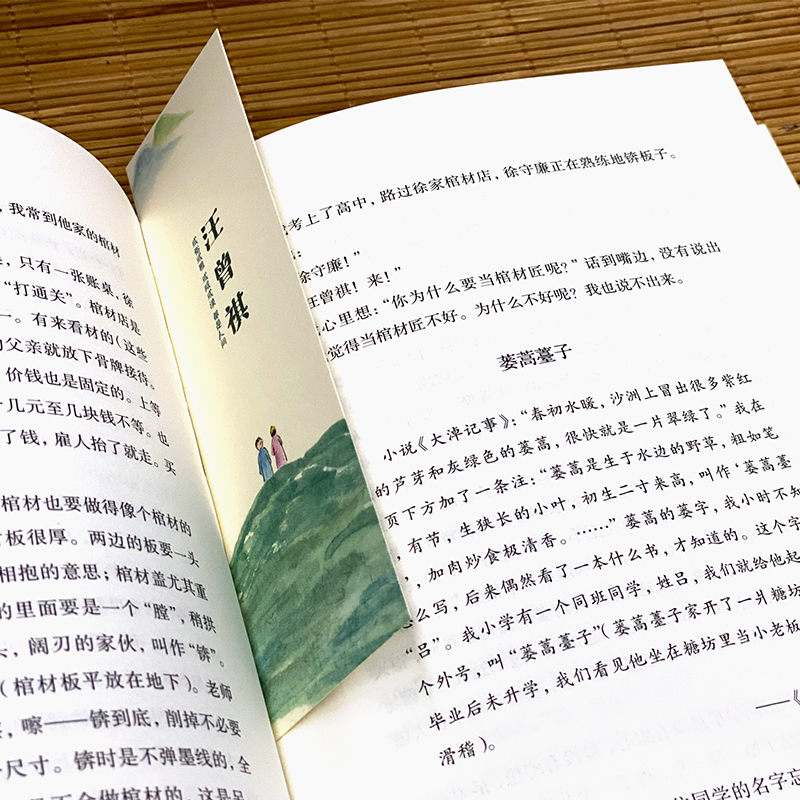 ，我常到他家的棺材
，只有一张账桌，徐
“打通关”。棺材店是
一。有来看材的（这些
父亲就放下骨牌接待。
价钱也是固定的。上等
几元至几块钱不等。也
了钱，雇人抬了就走。买
棺材也要做得像个棺材的
板很厚。两边的板要一头
相抱的意思；棺材盖尤其重
的里面要是一个“膛”，稍拱
，阔刃的家伙，叫作“锛”。
（棺材板平放在地下）。老师
，嚓——锛到底，削掉不必要
尺寸。锛时是不弹墨线的，全
会做棺材的，这是足
汪曾祺
考上了高中，路过徐家棺材店，徐守廉正在熟练地锛板子。
：
徐守廉！”
汪曾祺！来！”
心里想：“你为什么要当棺材匠呢？”话到嘴边，没有说出
觉得当棺材匠不好。为什么不好呢？我也说不出来。
蒌蒿薹子
小说《大淖记事》：“春初水暖，沙洲上冒出很多紫红
的芦芽和灰绿色的蒌蒿，很快就是一片翠绿了。”我在
页下方加了一条注：“蒌蒿是生于水边的野草，粗如笔
，有节，生狭长的小叶，初生二寸来高，叫作‘蒌蒿薹
，加肉炒食极清香。……”蒌蒿的蒌字，我小时不知
么写，后来偶然看了一本什么书，才知道的。这个字
“吕”。我小学有一个同班同学，姓吕，我们就给他起
个外号，叫“蒌蒿薹子”（蒌蒿薹子家开了一爿糖坊
毕业后未升学，我们看见他坐在糖坊里当小老板
滑稽）。
——《
同学的名字忘